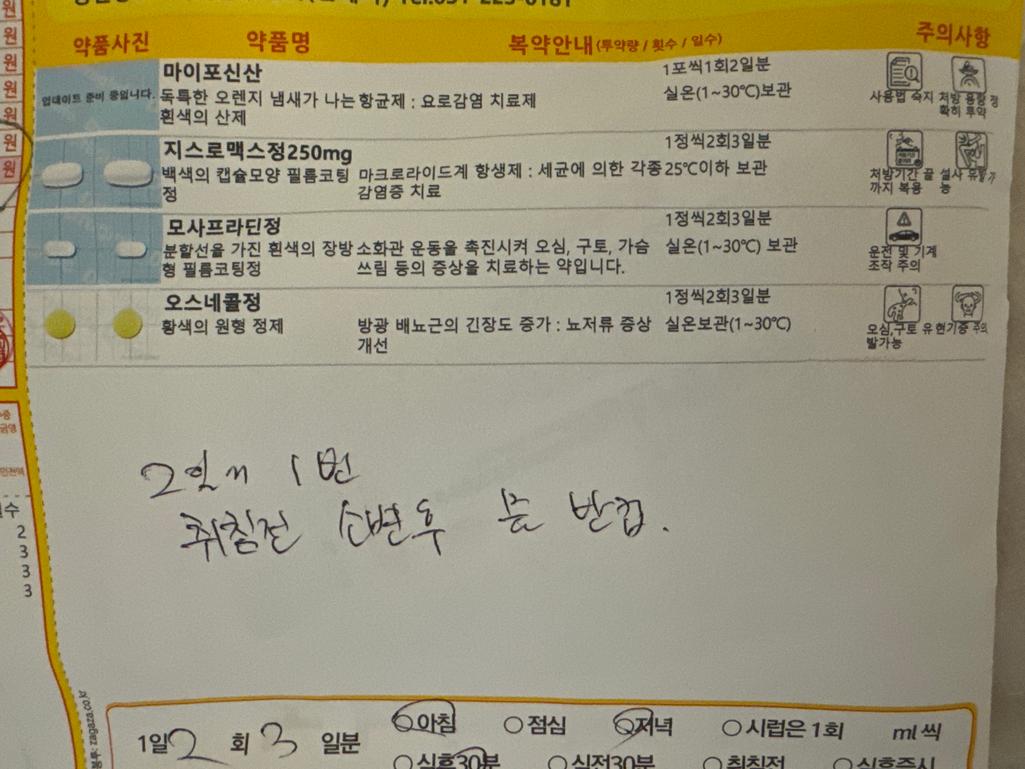 약품사진 약품명 복약안내(투약량 / 횟수 / 일수) 주의사항
마이포신산 1포씩1회2일분
업데이트 준비 중입니다. 독특한 오렌지 냄새가 나는 흰색의 산제 항균제 : 요로감염 치료제 실온(1~30℃)보관 사용법 숙지 처방 용량 정확히 투약
지스로맥스정250mg 1정씩2회3일분
백색의 캡슐모양 필름코팅정 마크로라이드계 항생제 : 세균에 의한 각종 감염증 치료 25℃이하 보관 처방기간 끝까지 복용 설사 유발가능
모사프라딘정 1정씩2회3일분
분할선을 가진 흰색의 장방형 필름코팅정 소화관 운동을 촉진시켜 오심, 구토, 가슴쓰림 등의 증상을 치료하는 약입니다. 실온(1~30℃) 보관 운전 및 기계 조작 주의
오스네콜정 1정씩2회3일분
황색의 원형 정제 방광 배뇨근의 긴장도 증가 : 뇨저류 증상 개선 실온보관(1~30℃) 오심,구토 유발가능 현기증 주의
2일에 1번
취침전 소변후 물 반컵.
1일 2 회 3 일분 아침 점심 저녁 시럽은 1회 ml 씩
식후30분 식전30분 취침전 식후즉시
원
원
원
원
원
원
원
2
3
3
3
zagaza.co.kr